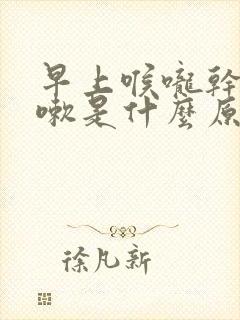 早上喉嚨幹
嗽是什麼原
徐凡新